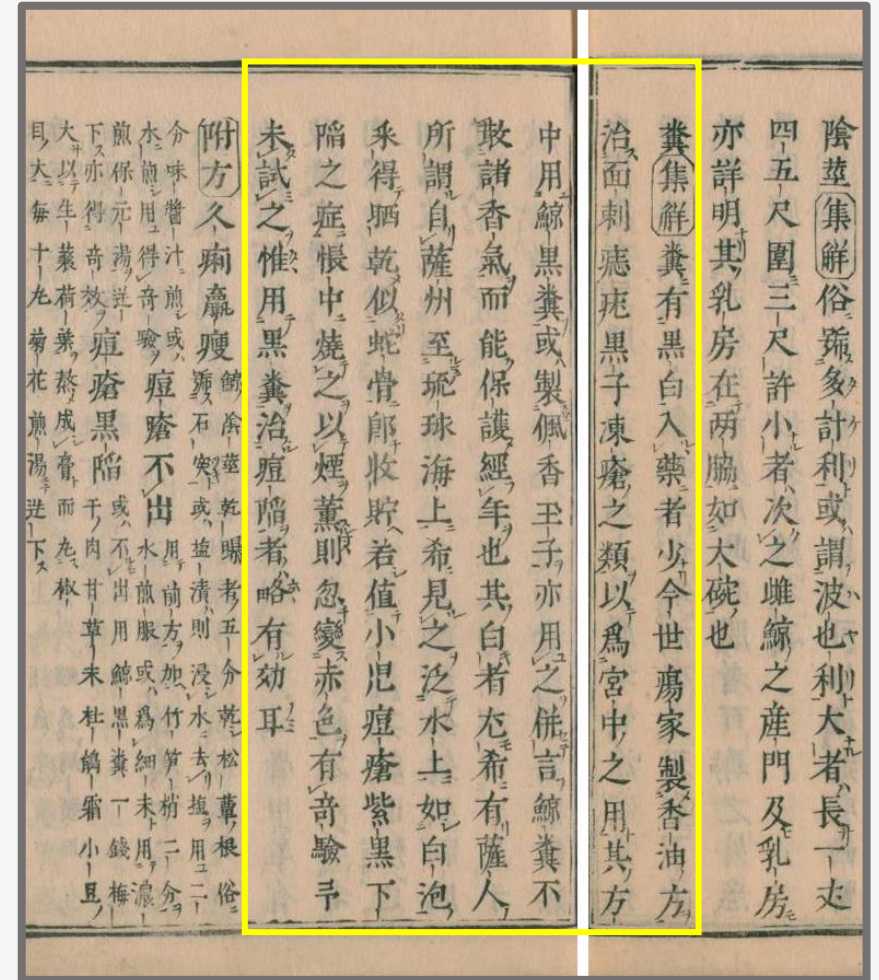 陰莖集解俗號多計利或謂波也利大者長一丈
四五尺圍三尺許小者次之雌鯨之産門及乳房
亦詳明其乳房在两脇如大碗也
糞集解糞有黒白入藥者少今世瘍家製香油方
治面刺痣疣黒子凍瘡之類以爲宮中之用其方
中用鯨黒糞或製佩香王子亦用之併言鯨糞不
散諸香氣而能保護經年也其白者尤希有薩人
所謂自薩州至琉球海上希見之泛水上如白泡
采得晒乾似蛇骨即收貯若值小児痘瘡紫黒下
陷之症帳中燒之以煙薰則忽變赤色有竒驗予
未試之惟用黒糞治痘陷者略有効耳
附方久痢羸瘦鯨陰莖乾曝者五分乾松蕈根俗號石突或塩漬則浸水去塩用二
分味醬汁煎或水煎用得竒驗痘瘡不出用前方加竹笋梢二分水煎服或爲細末用濃
煎保元湯送下亦得竒效痘瘡黒陷或不出用鯨黒糞一錢梅干肉甘草末杜鵑霜小豆
大以生蘘荷葉熬成膏而丸椒目大每十丸菊花煎湯送下